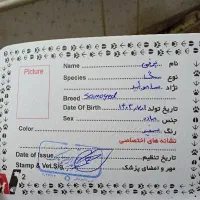 Picture
Name برفی نام
Species سگ نوع
سامویید نژاد
Breed Samoyed
Date Of Birth ۱۴۰۲ تاریخ تولد
Sex ماده جنس
Color سفید رنگ
نشانه های اختصاصی
Date of Issue تاریخ تنظیم
Stamp & Vet.Sig مهر و امضای پزشک